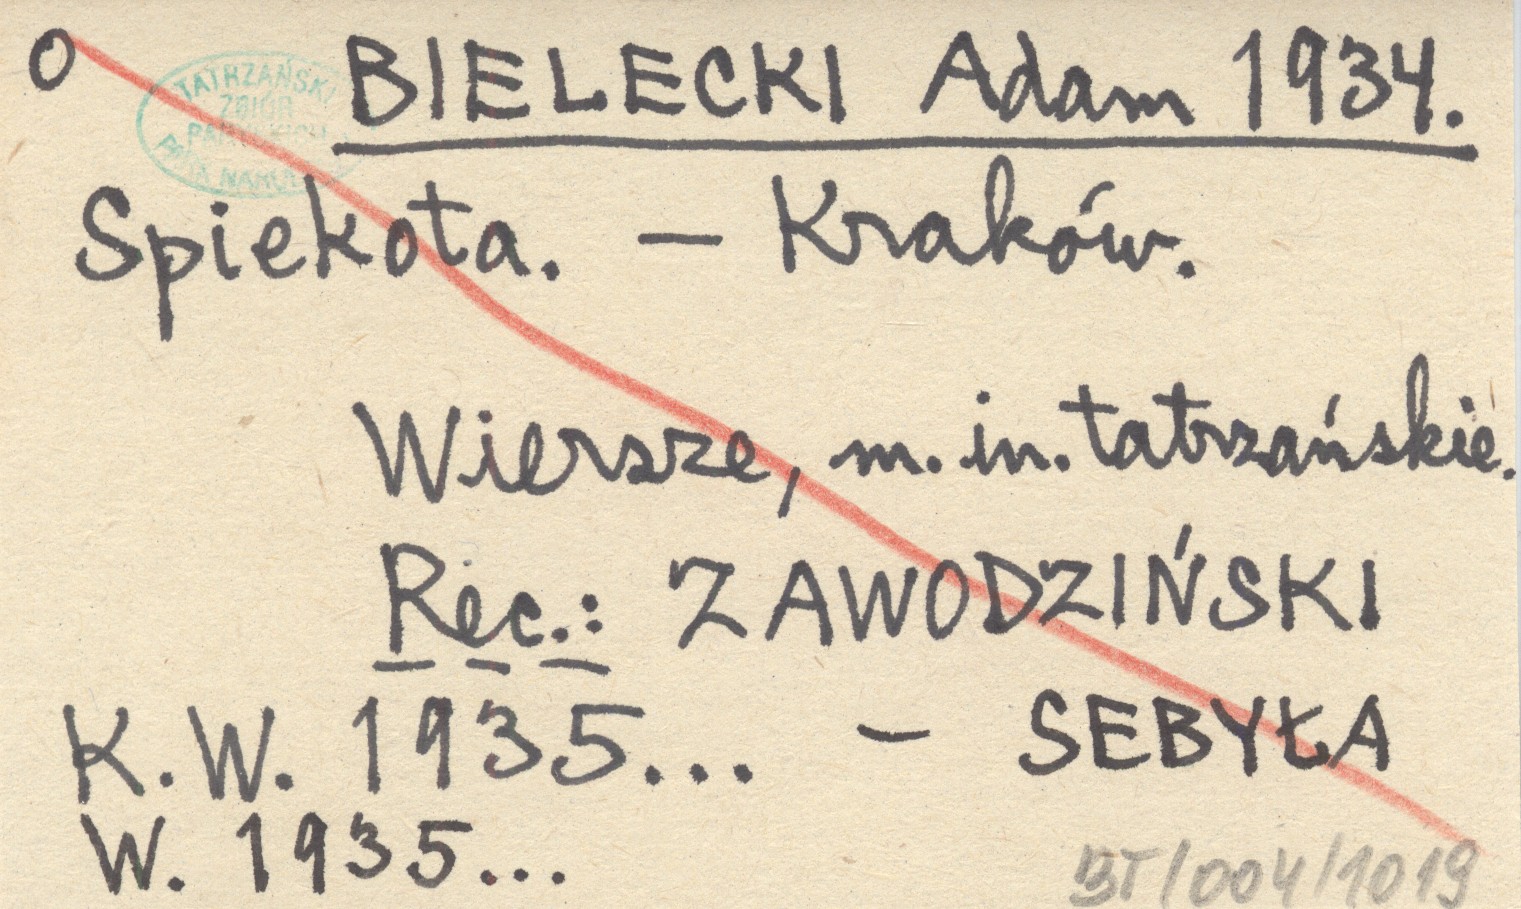 O BIELECKI Adam 1934.
TATRZAŃSKI
ZBIÓR
Spiekota. – Kraków.
Wiersze, m.in. tatrzańskie.
Rec.: ZAWODZIŃSKI
K.W. 1935... – SEBYŁA
W. 1935...
BT/004/1019